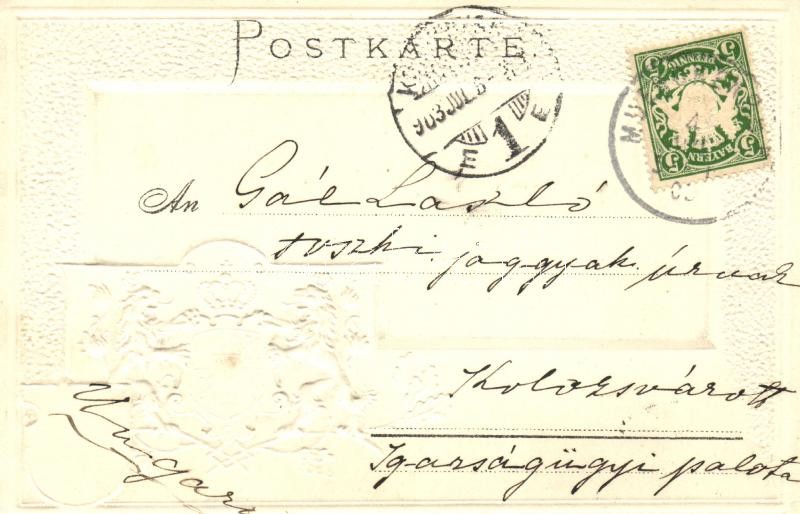 POSTKARTE.
903 JUL 6
1
E E
5 5
PFENNIG
BAYERN
5 5
An Gál László
joggyak. úrnak
Kolozsvárott
Igazságügyi palota
Ungarn